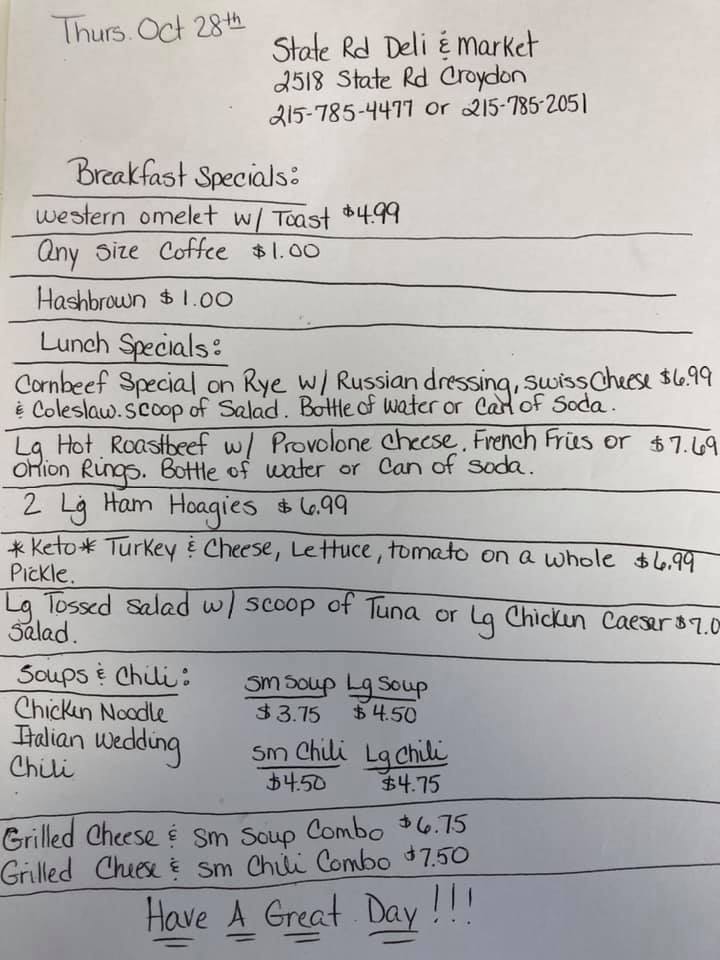 Thurs. Oct 28th
State Rd Deli & Market
2518 State Rd Croydon
215-785-4477 or 215-785-2051
Breakfast Specials:
western omelet w/ Toast $4.99
Any Size Coffee $1.00
Hashbrown $1.00
Lunch Specials:
Cornbeef Special on Rye w/ Russian dressing, swiss Cheese $6.99
& Coleslaw. scoop of Salad. Bottle of water or Can of Soda.
Lg Hot Roastbeef w/ Provolone cheese. French Fries or $7.69
Onion Rings. Bottle of water or Can of soda.
2 Lg Ham Hoagies $6.99
*Keto* Turkey & Cheese, Lettuce, tomato on a whole $6.99
Pickle.
Lg Tossed Salad w/ scoop of Tuna or Lg Chicken Caesar $7.0
Salad.
Soups & Chili:
Sm Soup Lg Soup
Chicken Noodle $3.75 $4.50
Italian Wedding
Chili
Sm Chili Lg Chili
$4.50 $4.75
Grilled Cheese & Sm Soup Combo $6.75
Grilled Cheese & Sm Chili Combo $7.50
Have A Great Day!!!